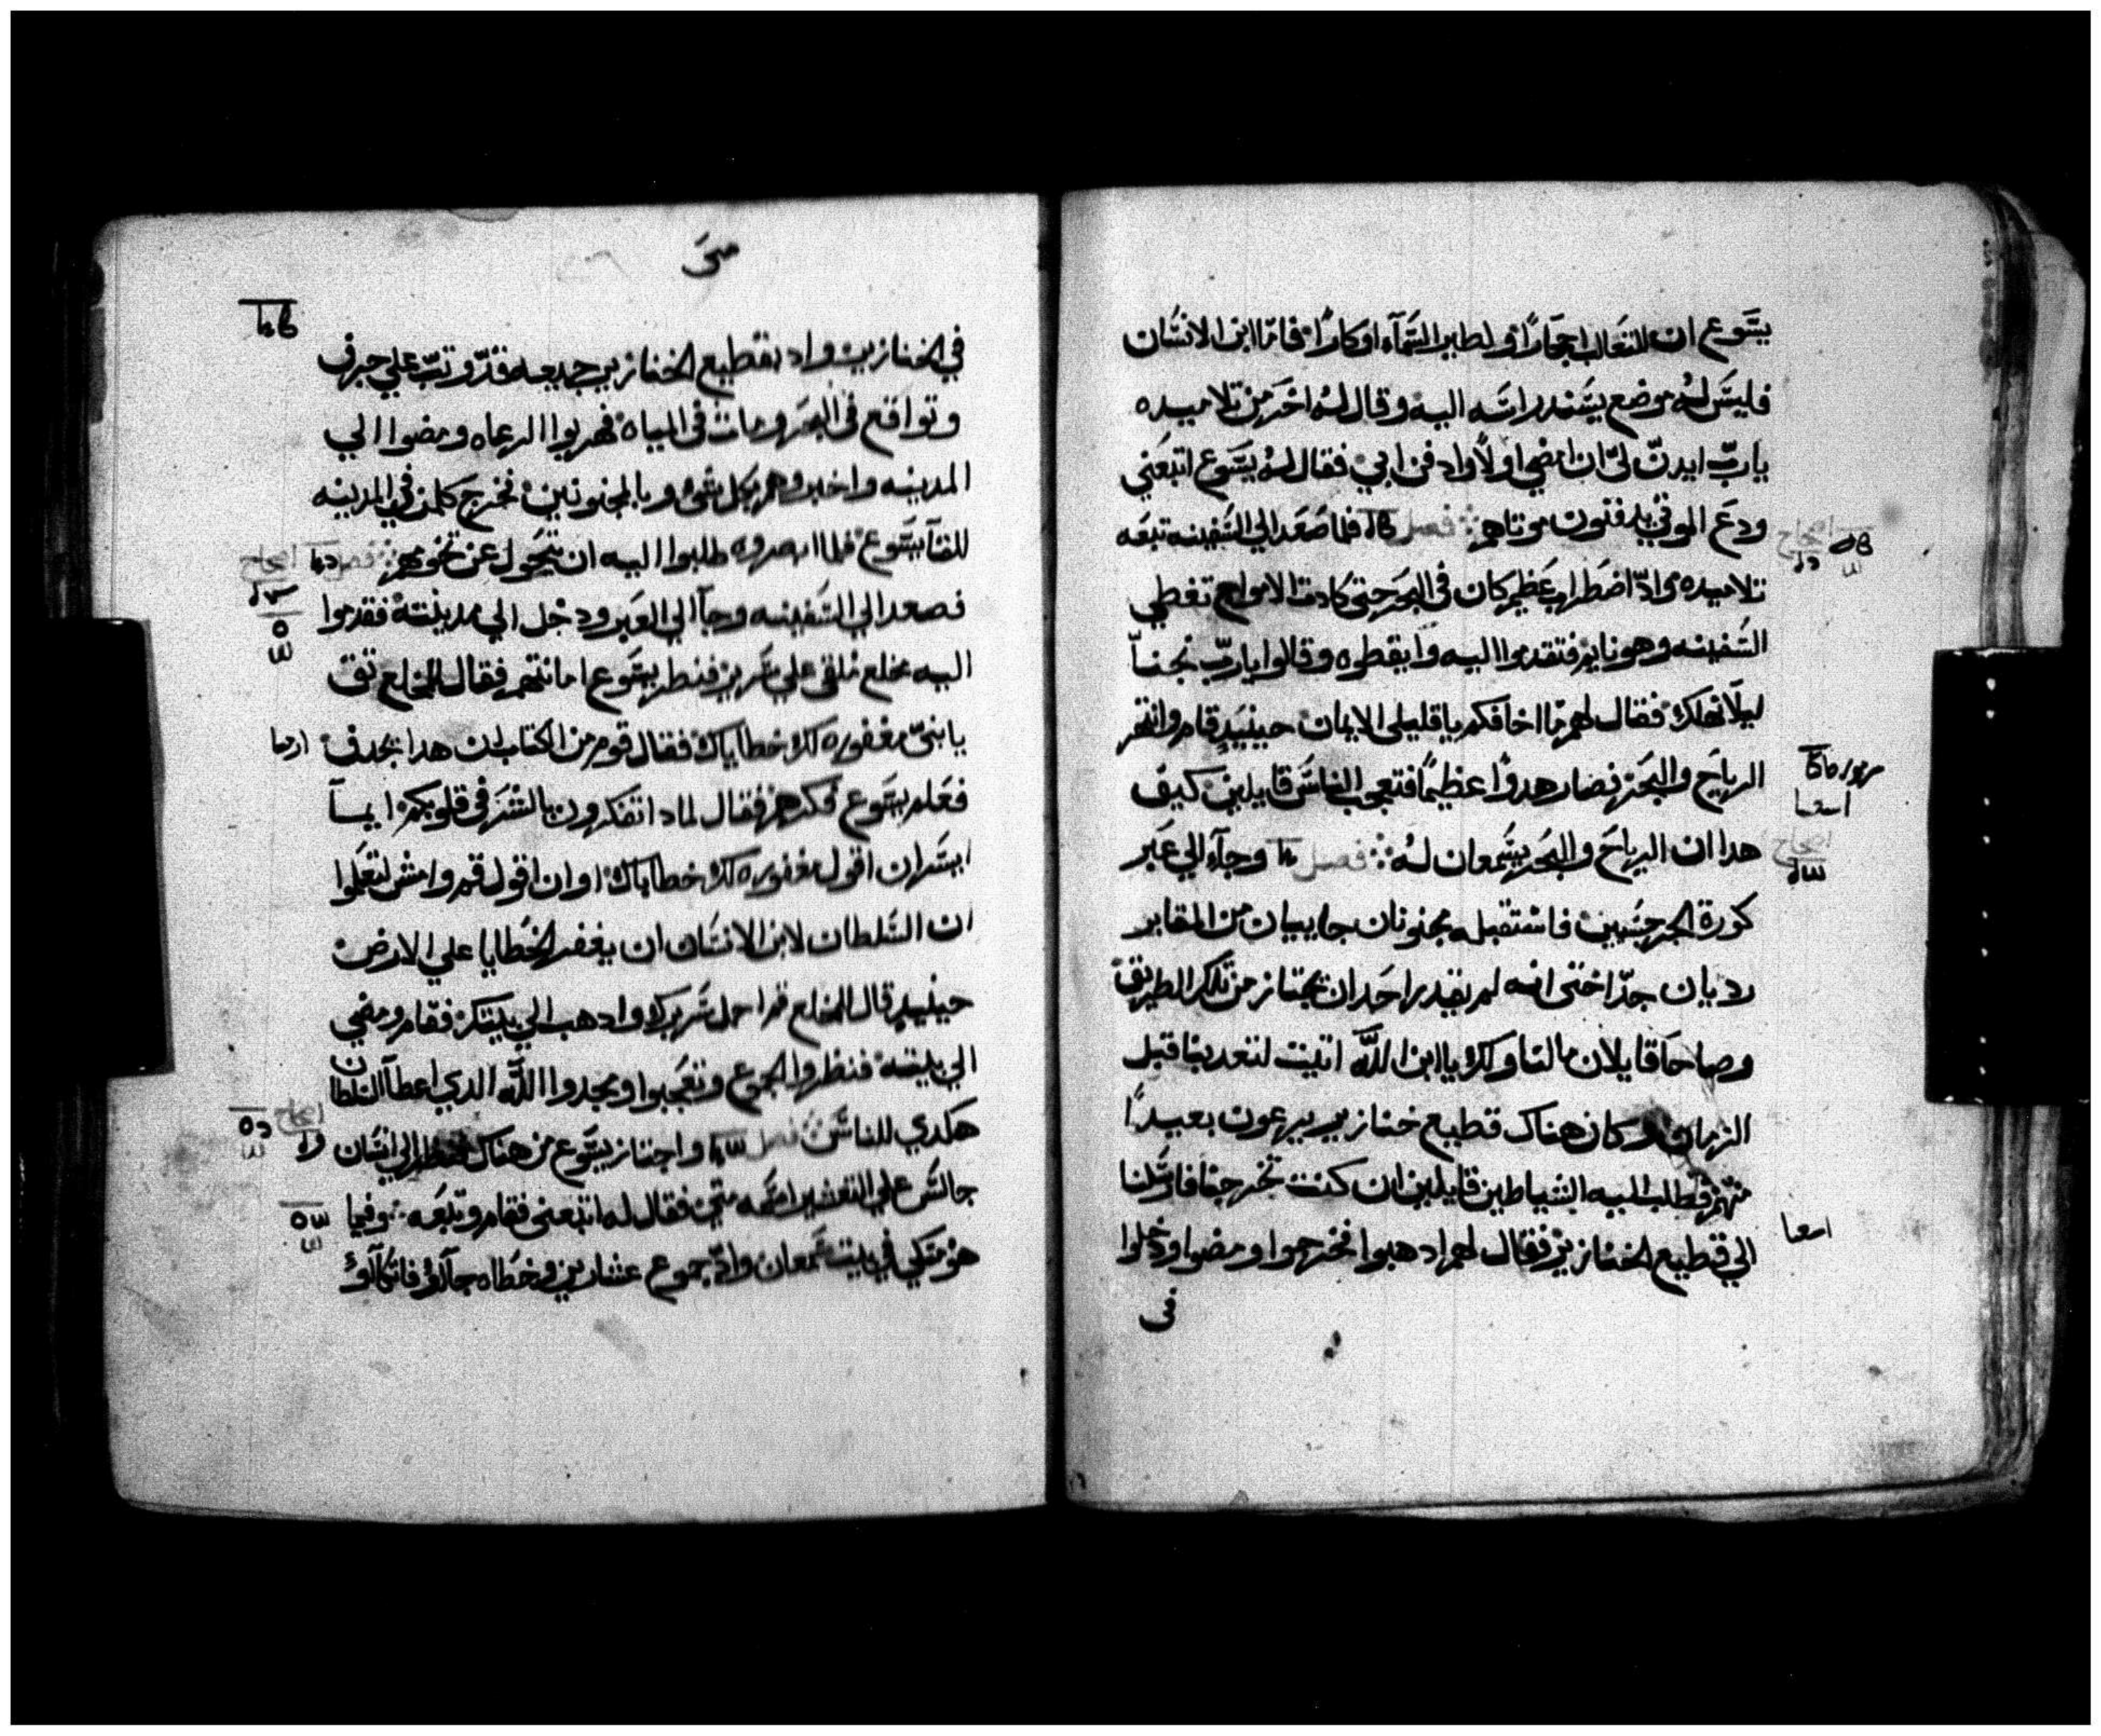 يسوع ان للثعالب اجحارًا ولطير السمآء اوكارًا فامّا ابن الانسان
فليس لهُ موضع يسند راسه اليه وقال لهُ اخر من تلاميده
يا ربّ ايدن لي ان امضي اولاً وادفن ابي فقال لهُ يسوع اتبعني
ودع الموتي يدفنون موتاهم فصل فلما صعد الي السفينه تبعه
تلاميده وادّا اضطراب عظيم كان في البحر حتي كادت الامواج تغطي
السفينه وهو نايم فتقدموا اليه وايقظوه وقالوا يا ربّ نجنا
ليلا نهلك فقال لهم ما اخافكم يا قليلي الايمان حينيدٍ قام وانتهر
الرياح والبحر فصار هدوًا عظيمًا فتعجب الناس قايلين كيف
هدا ان الرياح والبحر يسمعان لهُ فصل وجآء الي عبر
كورة الجرجسيين فاستقبله مجنونان جاييان من المقابر
رديان جدّا حتي انه لم يقدر احد ان يجتاز من تلك الطريق
وصاحا قايلان ما لنا ولك يا ابن اللّٰه اتيت لتعدبنا قبل
الزمان وكان هناك قطيع خنازير يرعون بعيدًا
منهم فطلب اليه الشياطين قايلين ان كنت تخرجنا فارسلنا
الي قطيع الخنازير فقال لهم ادهبوا فخرجوا ومضوا ودخلوا
في
متي
في الخنازير وادا بقطيع الخنازير جميعه قد وتب علي جرف
وتواقع في البحر ومات في المياه فهربوا الرعاه ومضوا الي
المدينه واخبروهم بكل شي وبالمجنونين فخرج كلمن في المدينه
للقآ يسوع فلما ابصروه طلبوا اليه ان يتحول عن تخومهم فصل
فصعد الي السفينه وجآ الي العبر ودخل الي مدينته فقدموا
اليه مخلع ملقي علي سرير فنظر يسوع امانتهم فقال للمخلع تق
يا بنيّ مغفوره لك خطاياك فقال قوم من الكتاب ان هدا يجدف
فعلم يسوع فكرهم فقال لمادا تفكرون بالشر في قلوبكم ايما
ايسر ان اقول مغفوره لك خطاياك او ان اقول قم وامش لتعلموا
ان السلطان لابن الانسان ان يغفر الخطايا علي الارض
حينيدٍ قال للمخلع قم احمل سريرك وادهب الي بيتك فقام ومضي
الي بيته فنظروا الجموع وتعجبوا ومجدوا اللّٰه الدي اعطا السلطان
هكدي للناس فصل واجتاز يسوع من هناك فنظر الي انسان
جالس علي التعشير اسمه متي فقال له اتبعني فقام وتبعه وفيما
هو متكي في بيت سمعان وادّ بجموع عشارين وخطاه جآاو فاتكآاو